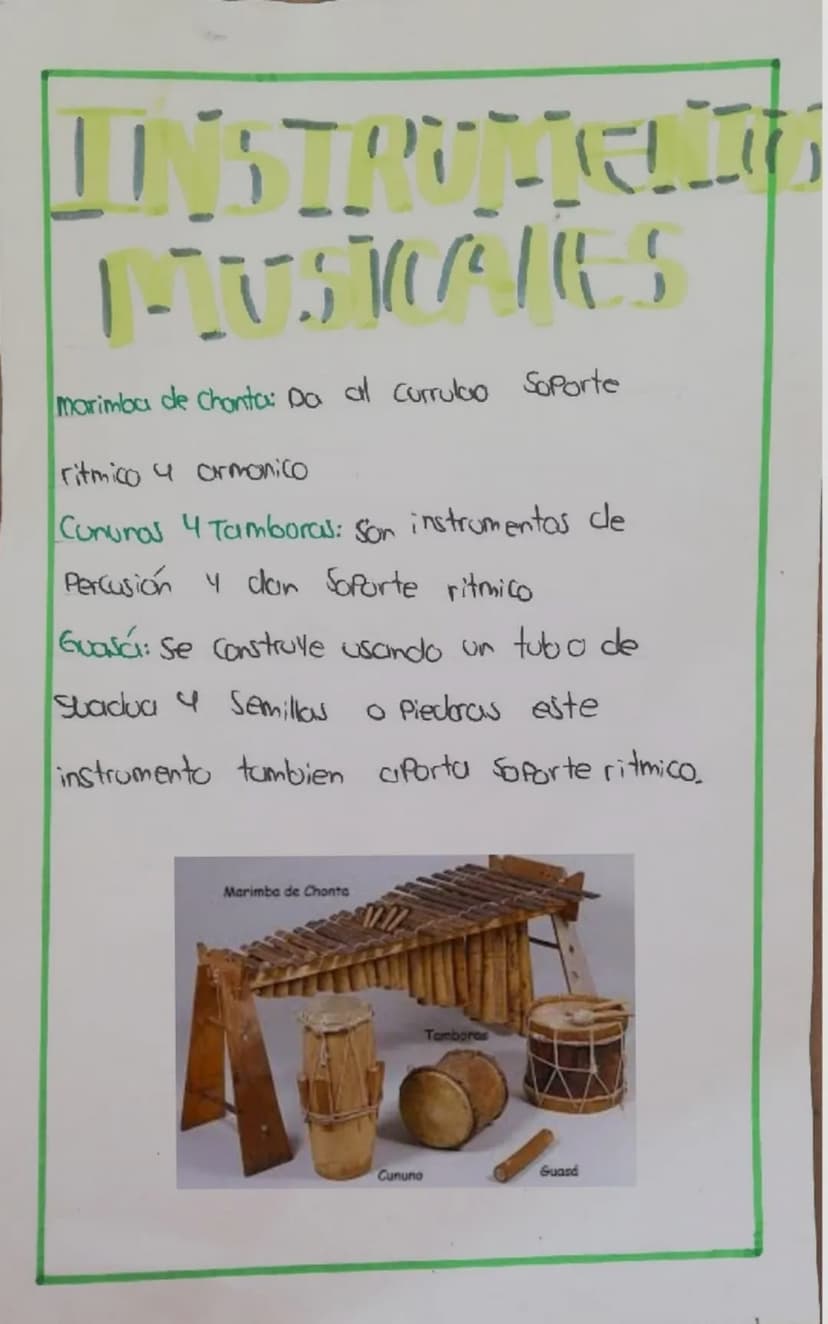 INSTRUMENTOS
MUSICALES
Marimba de Chonta: Da al currulao Soporte
ritmico y armonico
Cununos y Tamboras: Son instrumentos de
Percusión y dan Soporte ritmico
Guasá: Se construye usando un tubo de
guadua y Semillas o Piedras este
instrumento tambien aporta Soporte ritmico.
Marimba de Chonta
Tamboras
Cununo
Guasá